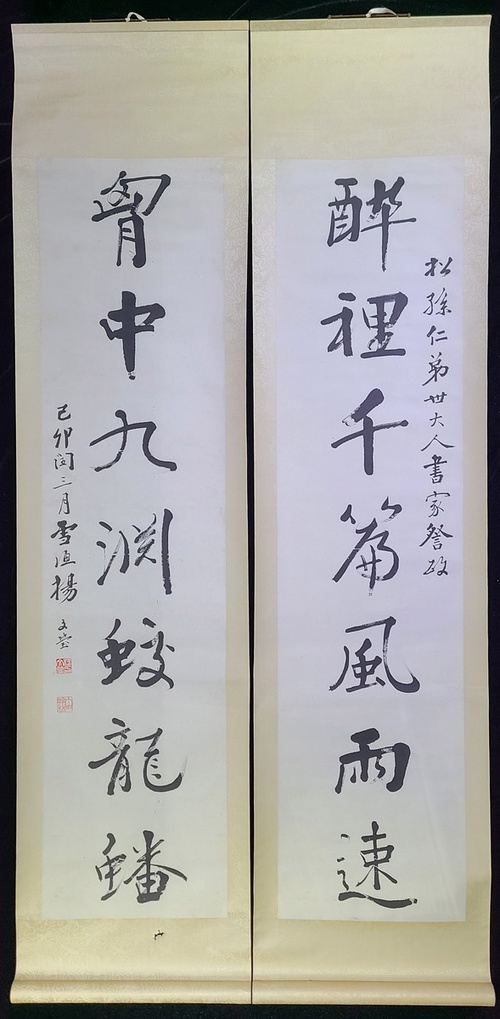 松孫仁弟世大人書家詧政
醉裡千篇風雨速
胷中九淵蛟龍蟠
己卯閏三月雪渔揚文瑩